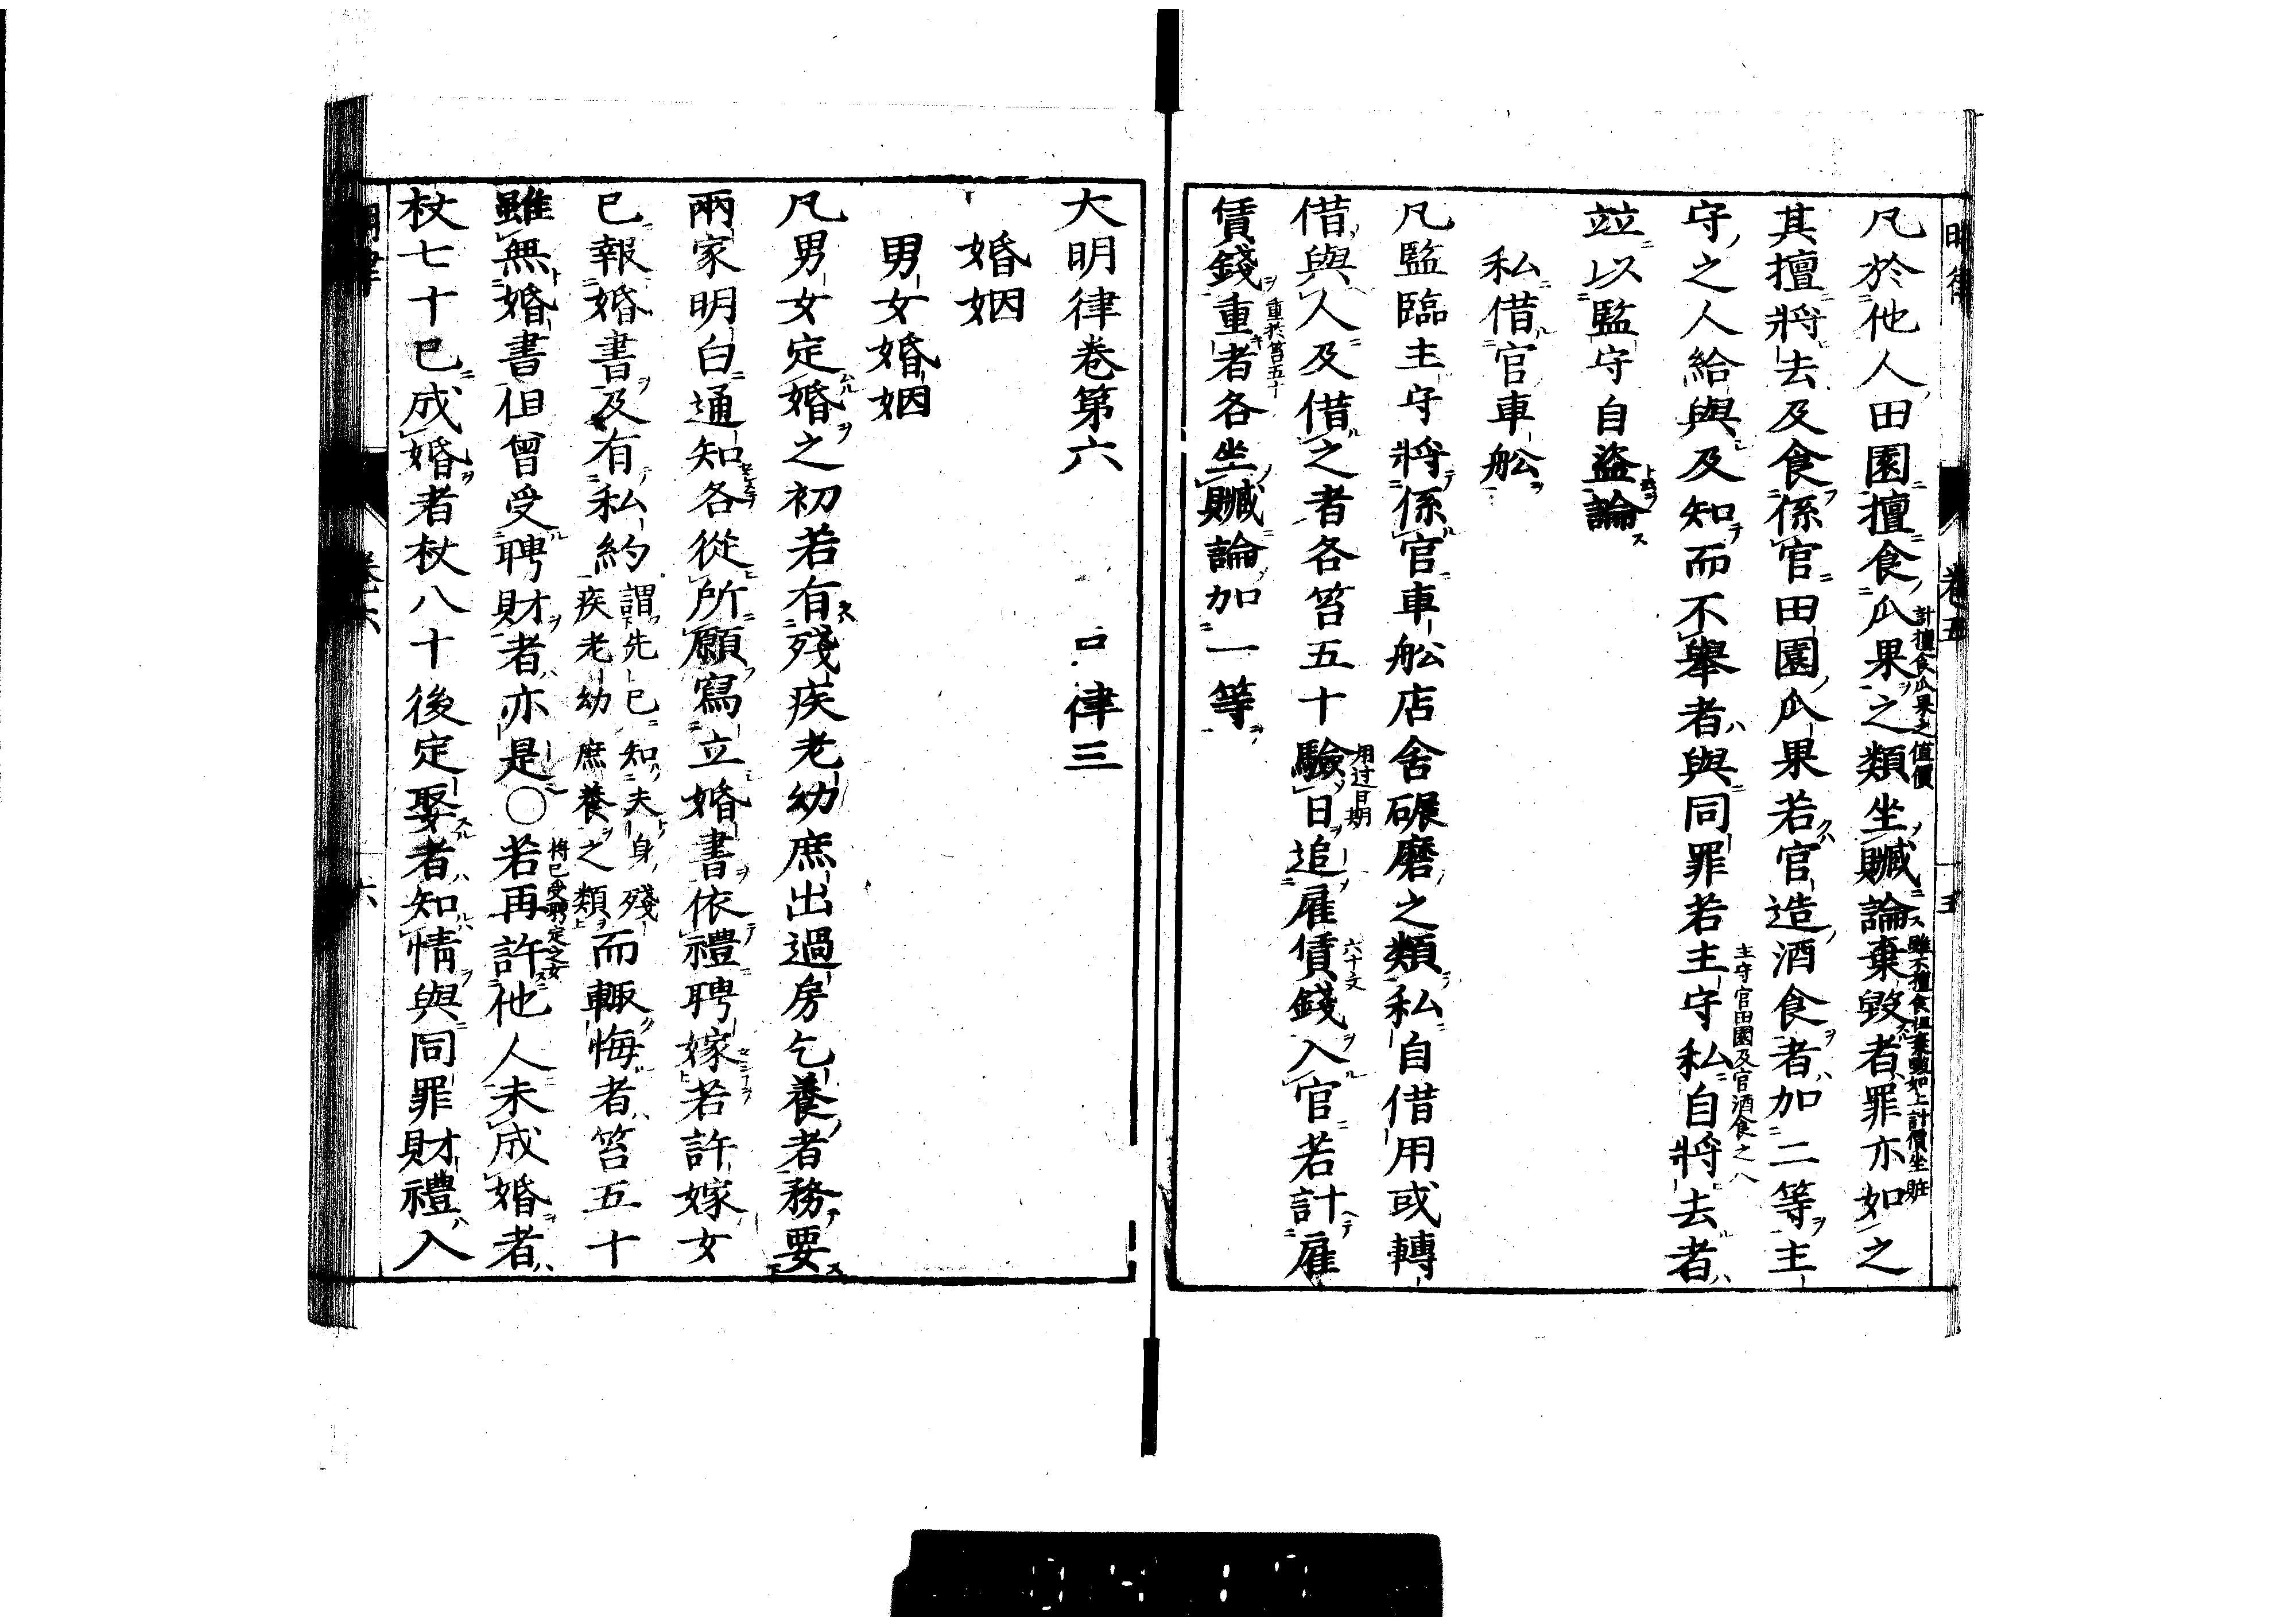 凡於他人田園擅食瓜果之類坐贓論棄毀者罪亦如之
計擅食瓜果之值價
雖不擅食但棄毀如上計價坐賍
其擅將去及食係官田園瓜果若官造酒食者加二等主
守之人給與及知而不舉者與同罪若主守私自將去者
主守官田園及官酒食之人
竝以監守自盜論
私借官車舩
凡監臨主守將係官車舩店舍碾磨之類私自借用或轉
借與人及借之者各笞五十驗日追雇賃錢入官若計雇
用过日期
六十文
賃錢重者各坐贓論加一等
重於笞五十
大明律卷第六
律三
婚姻
男女婚姻
凡男女定婚之初若有殘疾老幼庶出過房乞養者務要
兩家明白通知各從所願寫立婚書依禮聘嫁若許嫁女
已報婚書及有私約謂先已知夫身殘疾老幼庶養之類而輒悔者笞五十
雖無婚書但曾受聘財者亦是○若再許他人未成婚者
將已受聘定之女
杖七十已成婚者杖八十後定娶者知情與同罪財禮入